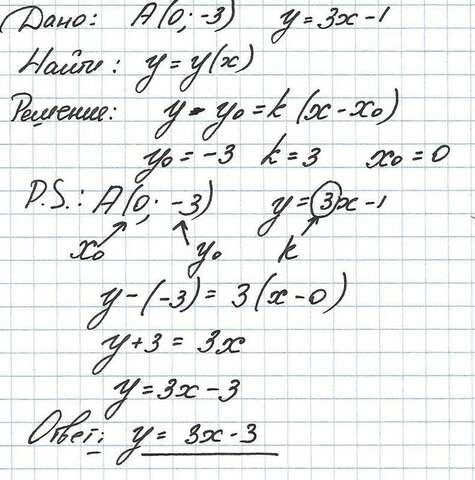 Дано: A(0; -3) y = 3x-1
Найти: y = y(x)
Решение: y - y₀ = k (x - x₀)
y₀ = -3 k = 3 x₀ = 0
P.S.: A(0; -3) y = 3x-1
x₀ y₀ k
y-(-3) = 3(x-0)
y+3 = 3x
y = 3x-3
Ответ: y = 3x-3